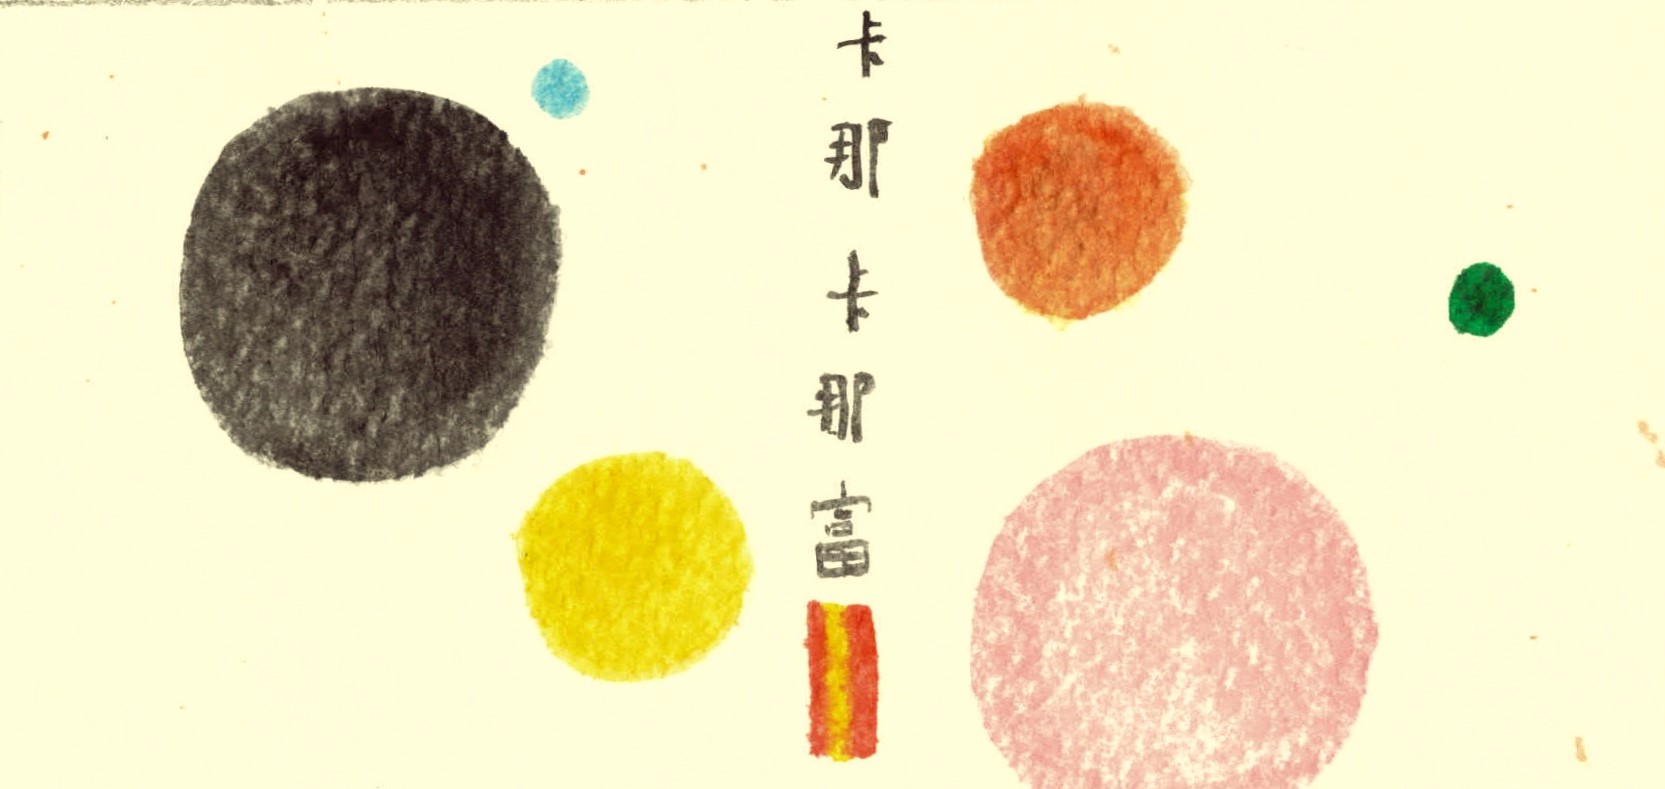 卡那卡那富